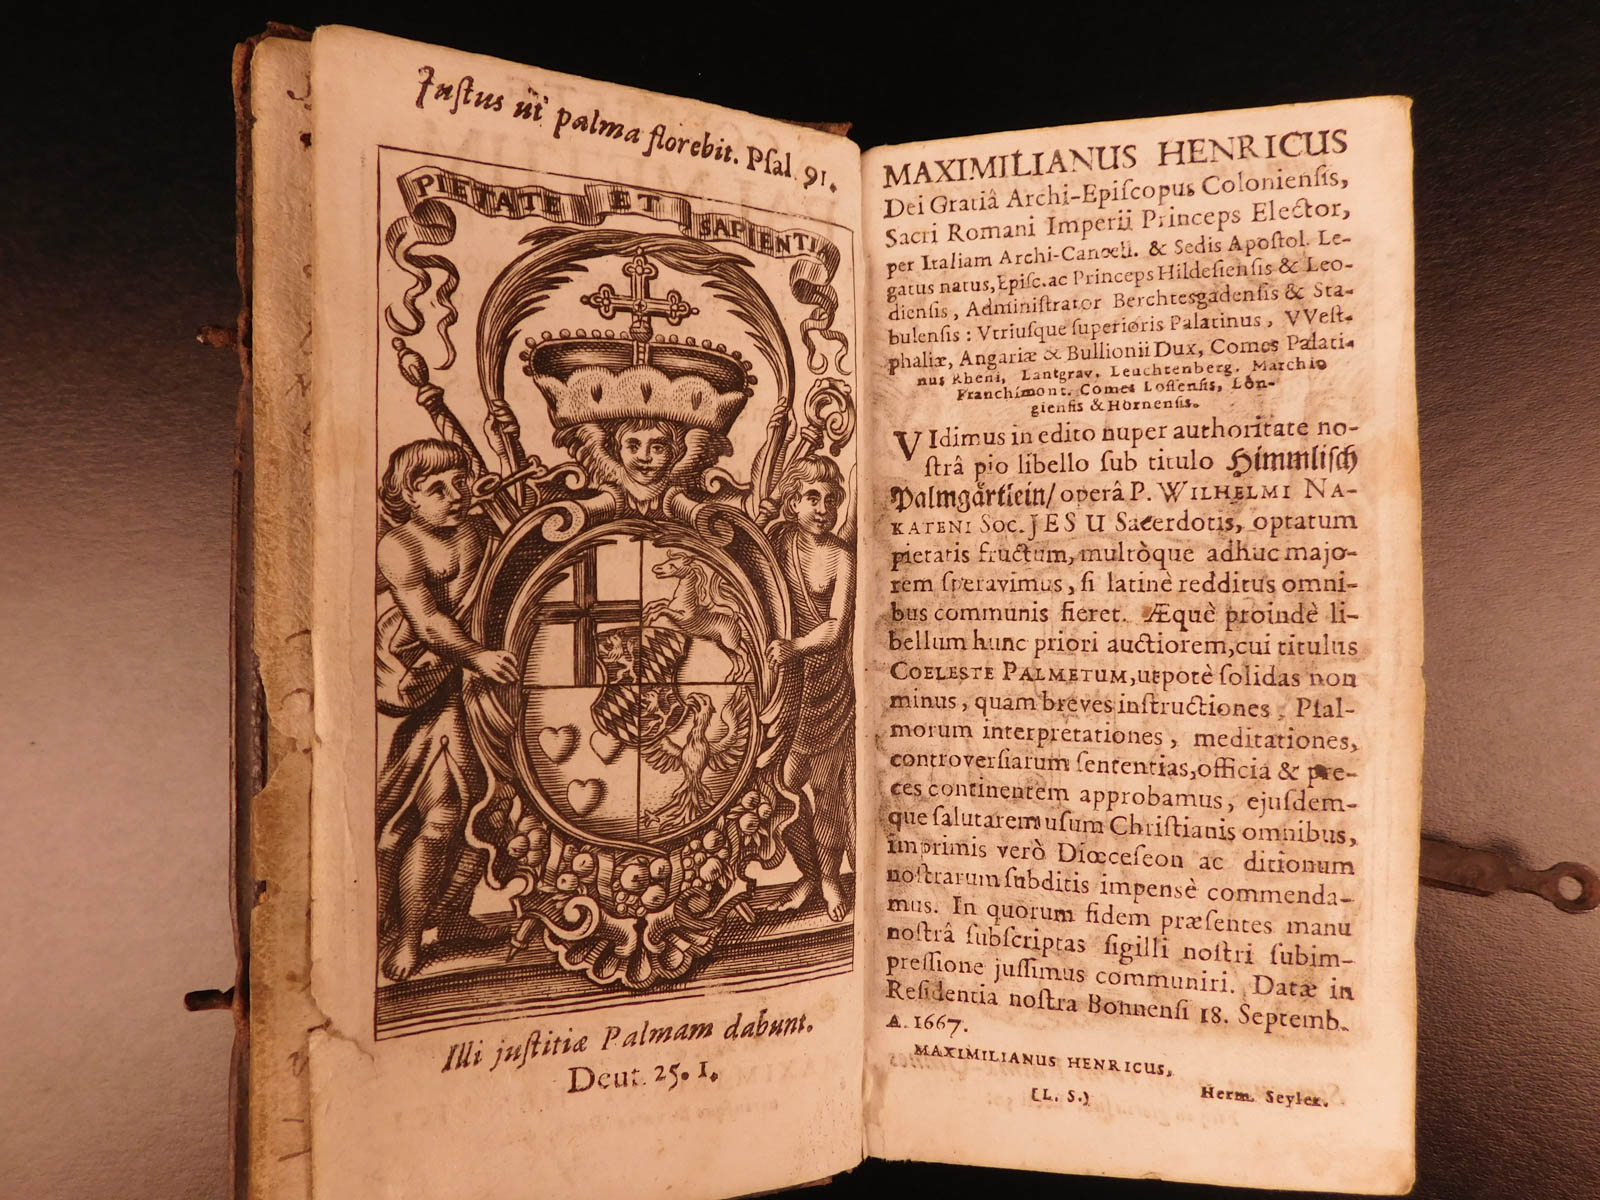 Juſtus ut palma florebit. Pſal. 91.
PIETATE ET SAPIENTIA
Illi juſtitiæ Palmam dabunt.
Deut. 25. 1.
MAXIMILIANUS HENRICUS
Dei Gratiâ Archi-Epiſcopus Colonienſis,
Sacri Romani Imperii Princeps Elector,
per Italiam Archi-Cancell. & Sedis Apoſtol. Le-
gatus natus, Epiſc. ac Princeps Hildeſienſis & Leo-
dienſis, Adminiſtrator Berchteſgadenſis & Sta-
bulenſis: Vtriuſque ſuperioris Palatinus, VVeſt-
phaliæ, Angariæ & Bullionii Dux, Comes Palati-
nus Rheni, Lantgrav. Leuchtenberg. Marchio
Franchimont. Comes Loſſenſis, Lon-
gienſis & Hornenſis.
VIdimus in edito nuper authoritate no-
ſtrâ pio libello ſub titulo Himmliſch
Palmgärtlein/ operâ P. WILHELMI NA-
KATENI Soc. JESU Sacerdotis, optatum
pietatis fructum, multòque adhuc majo-
rem ſperavimus, ſi latinè redditus omni-
bus communis fieret. Æquè proindè li-
bellum hunc priori auctiorem, cui titulus
COELESTE PALMETUM, utpotè ſolidas non
minus, quam breves inſtructiones, Pſal-
morum interpretationes, meditationes,
controverſiarum ſententias, officia & pre-
ces continentem approbamus, ejuſdem-
que ſalutarem uſum Chriſtianis omnibus,
imprimis verò Diœceſeon ac ditionum
noſtrarum ſubditis impensè commenda-
mus. In quorum fidem præſentes manu
noſtrâ ſubſcriptas ſigilli noſtri ſubim-
preſſione juſſimus communiri. Datæ in
Reſidentia noſtra Bonnenſi 18. Septemb.
A. 1667.
MAXIMILIANUS HENRICUS,
(L. S.) Herm. Seyler.